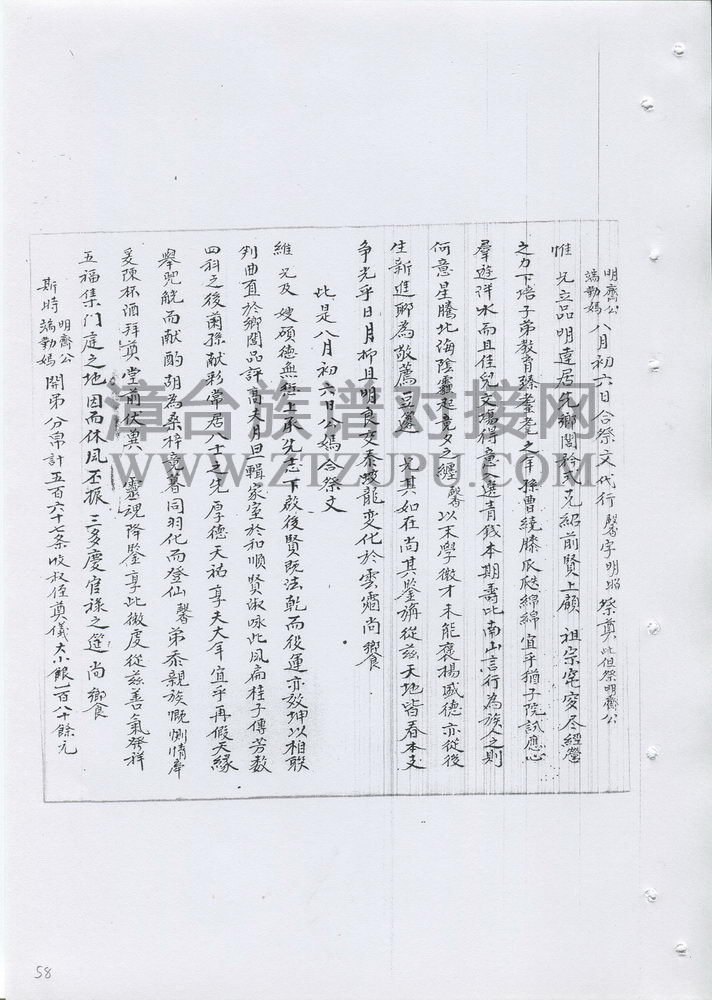 明齋公
端勤媽 八月初六日合祭文代行 馨字明昭 祭奠 此但祭明齋公
惟 兄立品明達居先鄉閭矜式 兄紹前賢上顧 祖宗窀穸尽經營
之力下培子弟教育 孫曹繞膝瓜瓞綿綿 宜乎猶子院試應心
羣遊泮水而且佳兒文塲得意入選青錢本期壽比南山言行為族人之則
何意星騰北海陰靈起竟夕之纒 馨 以末學微才未能褒楊盛德亦從後
生新進聊為敬薦豆籩 兄其如在尚其鑒旃從兹天地皆春本支
争光乎日月柳且明良交泰坡龍变化於雲霄尚饗
此是八月初六日公媽合祭文
維 兄及 嫂碩德無 上承先志下啟後賢既法乾而役運亦效坤以相聫
列曲直於鄉閭品評高夫月旦輯家室於和順賢淑咏此風扁桂子傳芳数
四科之後蘭孫献彩常居八十之先厚德天祐享夫大年宜乎再假天緣
舉兕觥而献酌胡為桑梓竟暮同羽化而登仙 馨 弟忝親族慨惻情牽
爰陳杯酒拜奠 堂前伏冀 靈魂降鑒享此微虔從兹善氣發祥
五福集门庭之地因而休風丕振三多慶官祿之筵 尚 饗
斯時 明齋公
端勤媽 開弟分帛計五百六十七条收叔侄奠儀大小銀一百八十餘元
漳台族谱对接网
WWW.ZTZUPU.COM
58